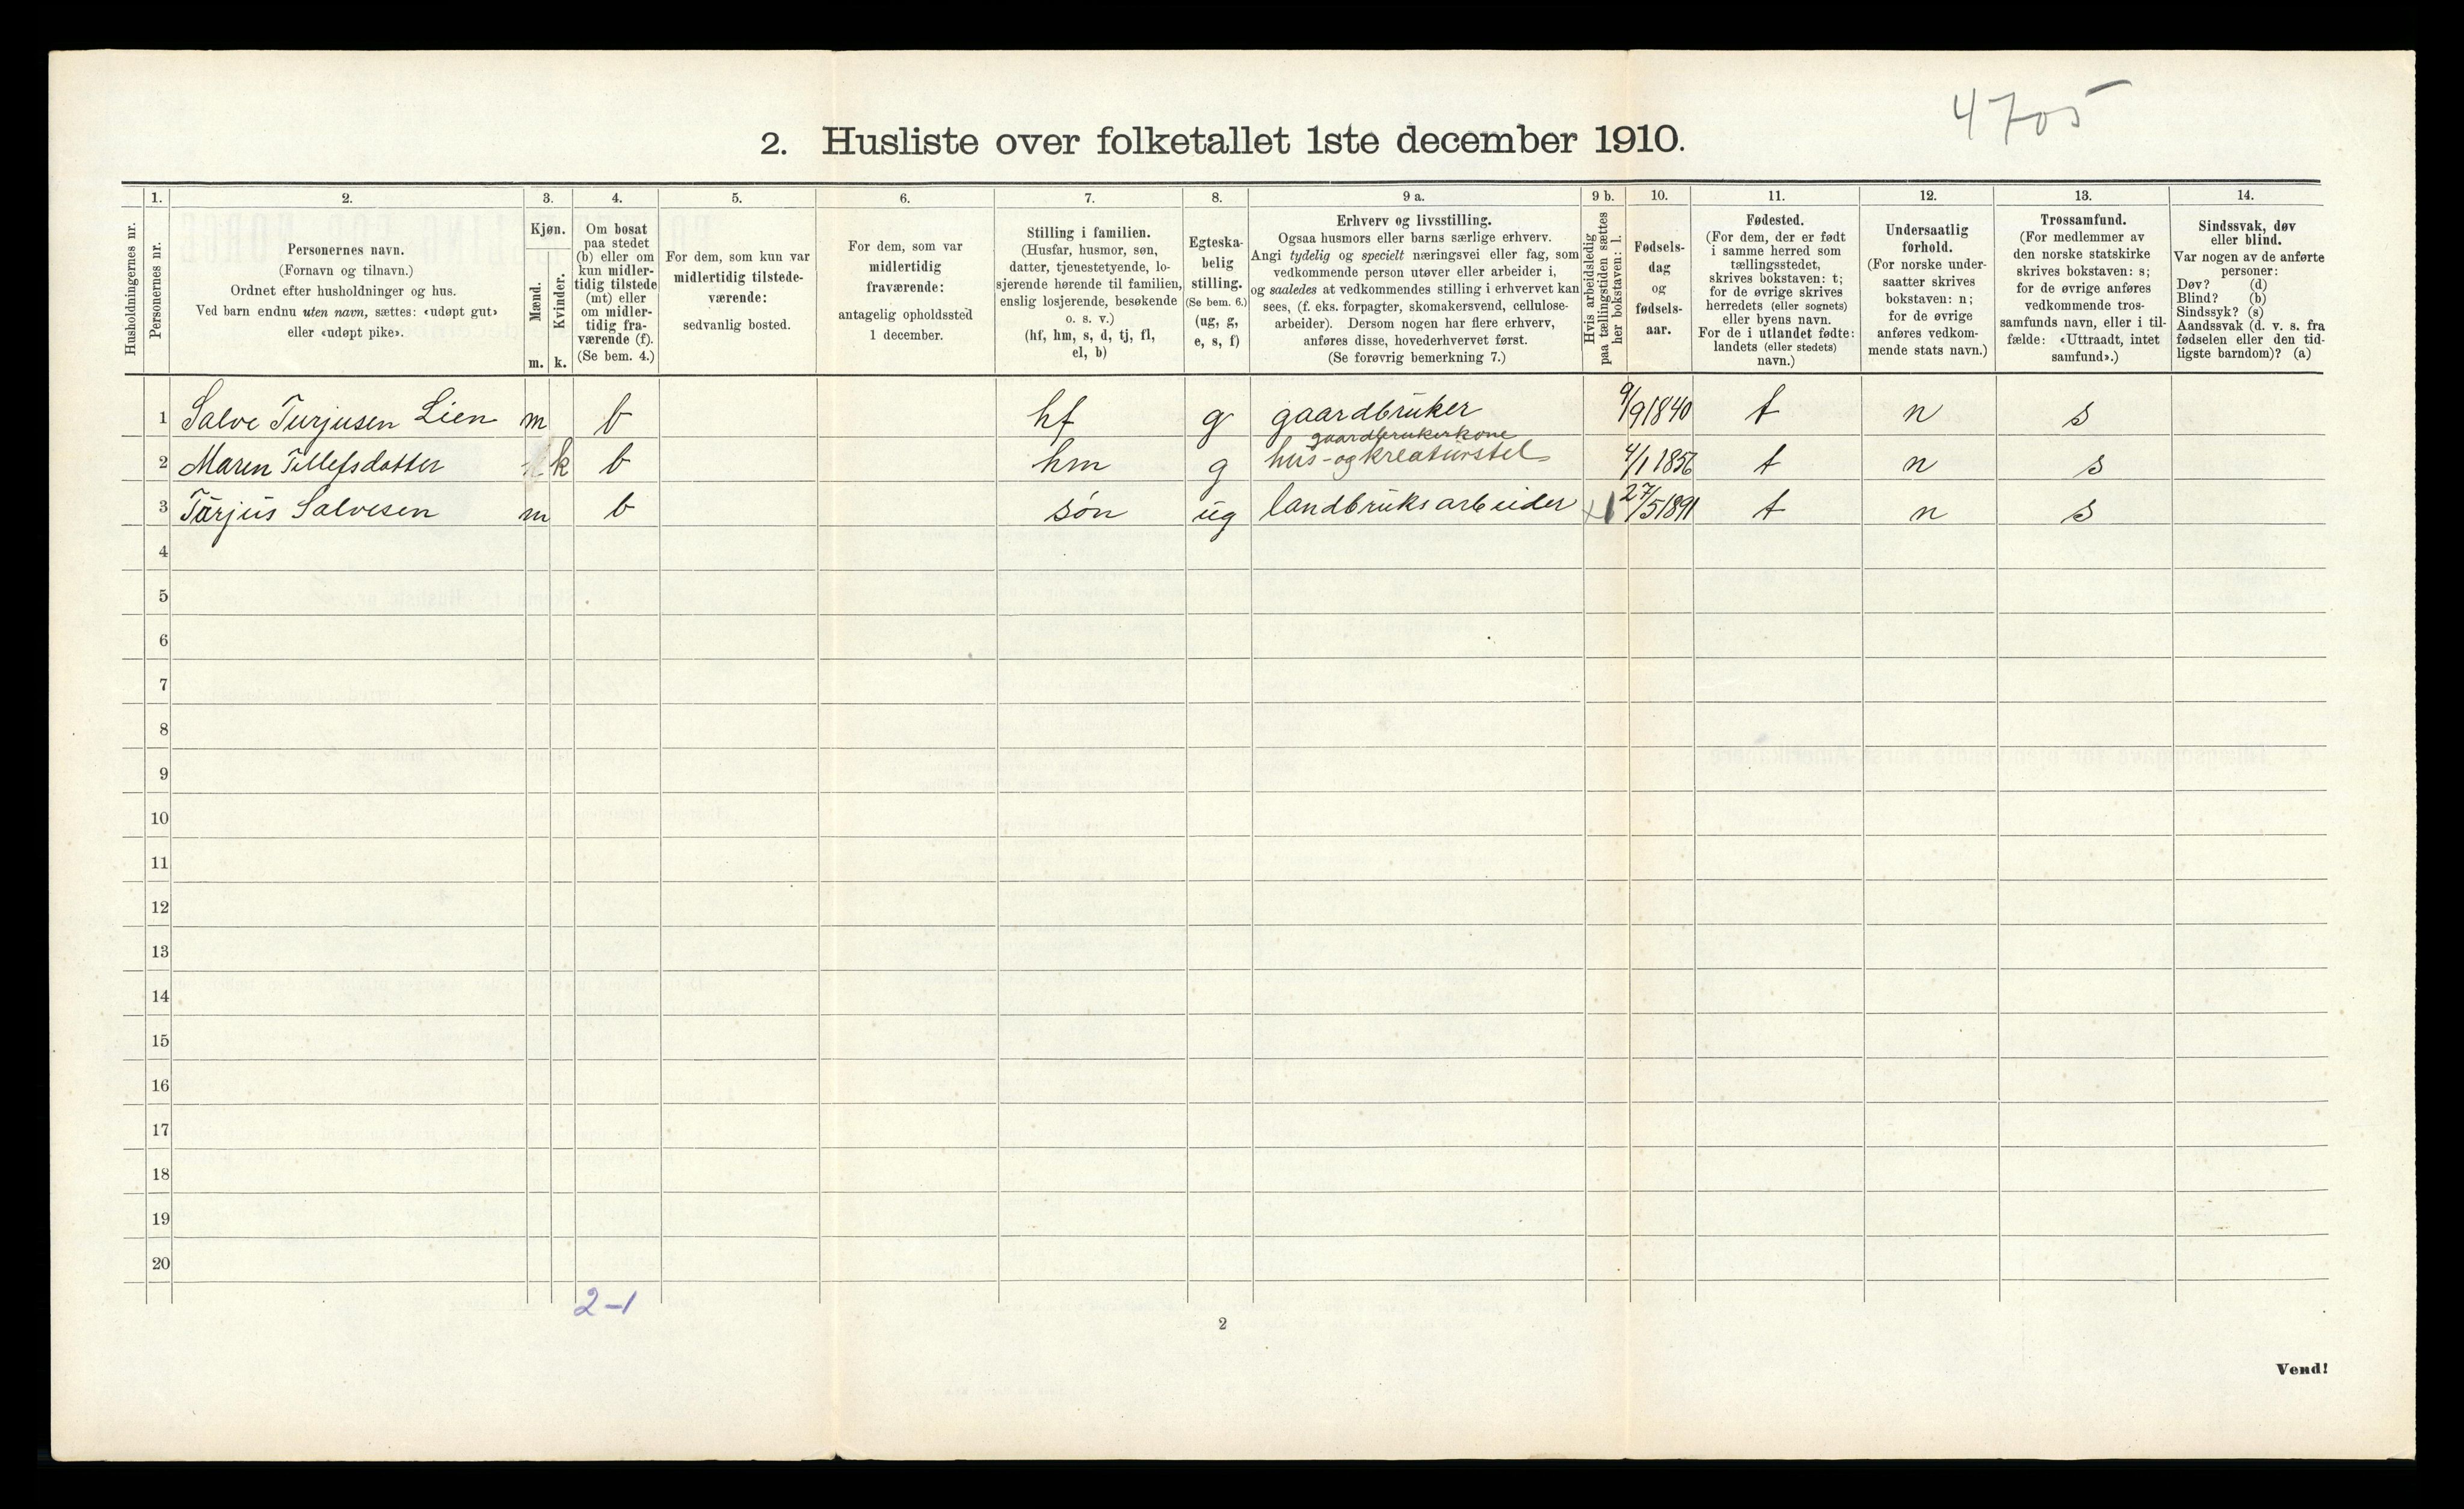 4705
2. Husliste over folketallet 1ste december 1910.
Husholdningernes nr.
1.
Personernes nr.
2.
Personernes navn.
(Fornavn og tilnavn.)
Ordnet efter husholdninger og hus.
Ved barn endnu uten navn, sættes: «udøpt gut»
eller «udøpt pike».
3.
Kjøn.
Mænd.
Kvinder.
m. k.
4.
Om bosat
paa stedet
(b) eller om
kun midler-
tidig tilstede
(mt) eller
om midler-
tidig fra-
værende (f).
(Se bem. 4.)
5.
For dem, som kun var
midlertidig tilstede-
værende:
sedvanlig bosted.
6.
For dem, som var
midlertidig
fraværende:
antagelig opholdssted
1 december.
7.
Stilling i familien.
(Husfar, husmor, søn,
datter, tjenestetyende, lo-
sjerende hørende til familien,
enslig losjerende, besøkende
o. s. v.)
(hf, hm, s, d, tj, fl,
el, b)
8.
Egteska-
belig
stilling.
(Se bem. 6.)
(ug, g,
e, s, f)
9 a.
Erhverv og livsstilling.
Ogsaa husmors eller barns særlige erhverv.
Angi tydelig og specielt næringsvei eller fag, som
vedkommende person utøver eller arbeider i,
og saaledes at vedkommendes stilling i erhvervet kan
sees, (f. eks. forpagter, skomakersvend, cellulose-
arbeider). Dersom nogen har flere erhverv,
anføres disse, hovederhvervet først.
(Se forøvrig bemerkning 7.)
9 b.
Hvis arbeidsledig
paa tællingstiden sættes
her bokstaven: l.
10.
Fødsels-
dag
og
fødsels-
aar.
11.
Fødested.
(For dem, der er født
i samme herred som
tællingsstedet,
skrives bokstaven: t;
for de øvrige skrives
herredets (eller sognets)
eller byens navn.
For de i utlandet fødte:
landets (eller stedets)
navn.)
12.
Undersaatlig
forhold.
(For norske under-
saatter skrives
bokstaven: n;
for de øvrige
anføres vedkom-
mende stats navn.)
13.
Trossamfund.
(For medlemmer av
den norske statskirke
skrives bokstaven: s;
for de øvrige anføres
vedkommende tros-
samfunds navn, eller i til-
fælde: «Uttraadt, intet
samfund».)
14.
Sindssvak, døv
eller blind.
Var nogen av de anførte
personer:
Døv? (d)
Blind? (b)
Sindssyk? (s)
Aandssvak (d. v. s. fra
fødselen eller den tid-
ligste barndom)? (a)
1 Salve Turjusen Lien m b hf g gaardbruker 9/9 1840 t n s
gaardbrukerkone
2 Maren Tellefsdatter k b hm g hus-og kreaturstel 4/1 1856 t n s
3 Tarjus Salvesen m b søn ug landbruksarbeider 27/5 1891 t n s
4
5
6
7
8
9
10
11
12
13
14
15
16
17
18
19
20
2-1
2
Vend!